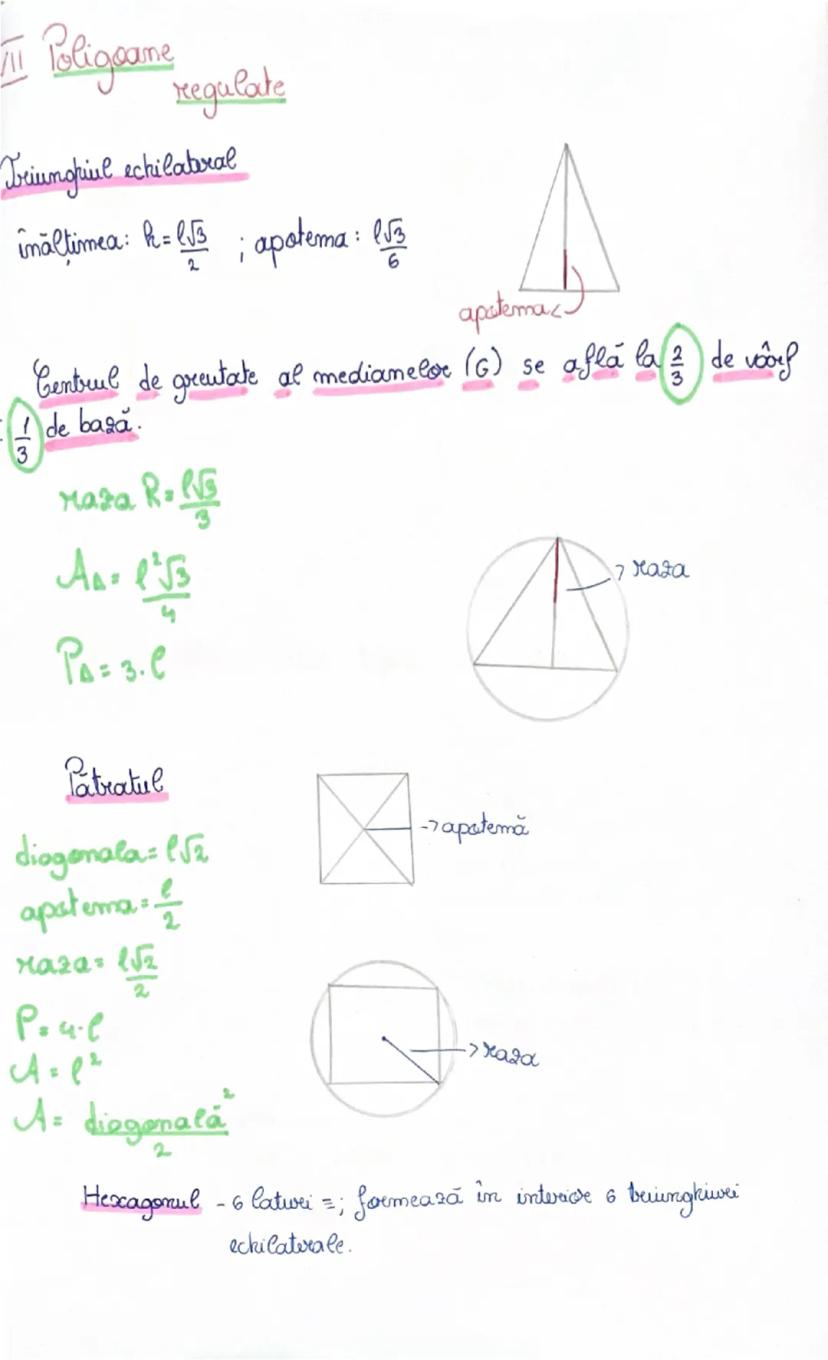 III Poligoane
regulate
Triunghiul echilateral
înălțimea: h = l√3/2 ; apotema: l√3/6
apotema
Centrul de greutate al medianelor (G) se află la 2/3 de vârf
1/3 de bază.
raza R = l√3/3
A△ = l²√3/4
raza
P△ = 3·l
Pătratul
→ apotemă
diagonala = l√2
apotema = l/2
raza = l√2/2
P = 4·l
→ raza
A = l²
A = diagonală²/2
Hexagonul - 6 laturi ≡; formează în interior 6 triunghiuri
echilaterale.